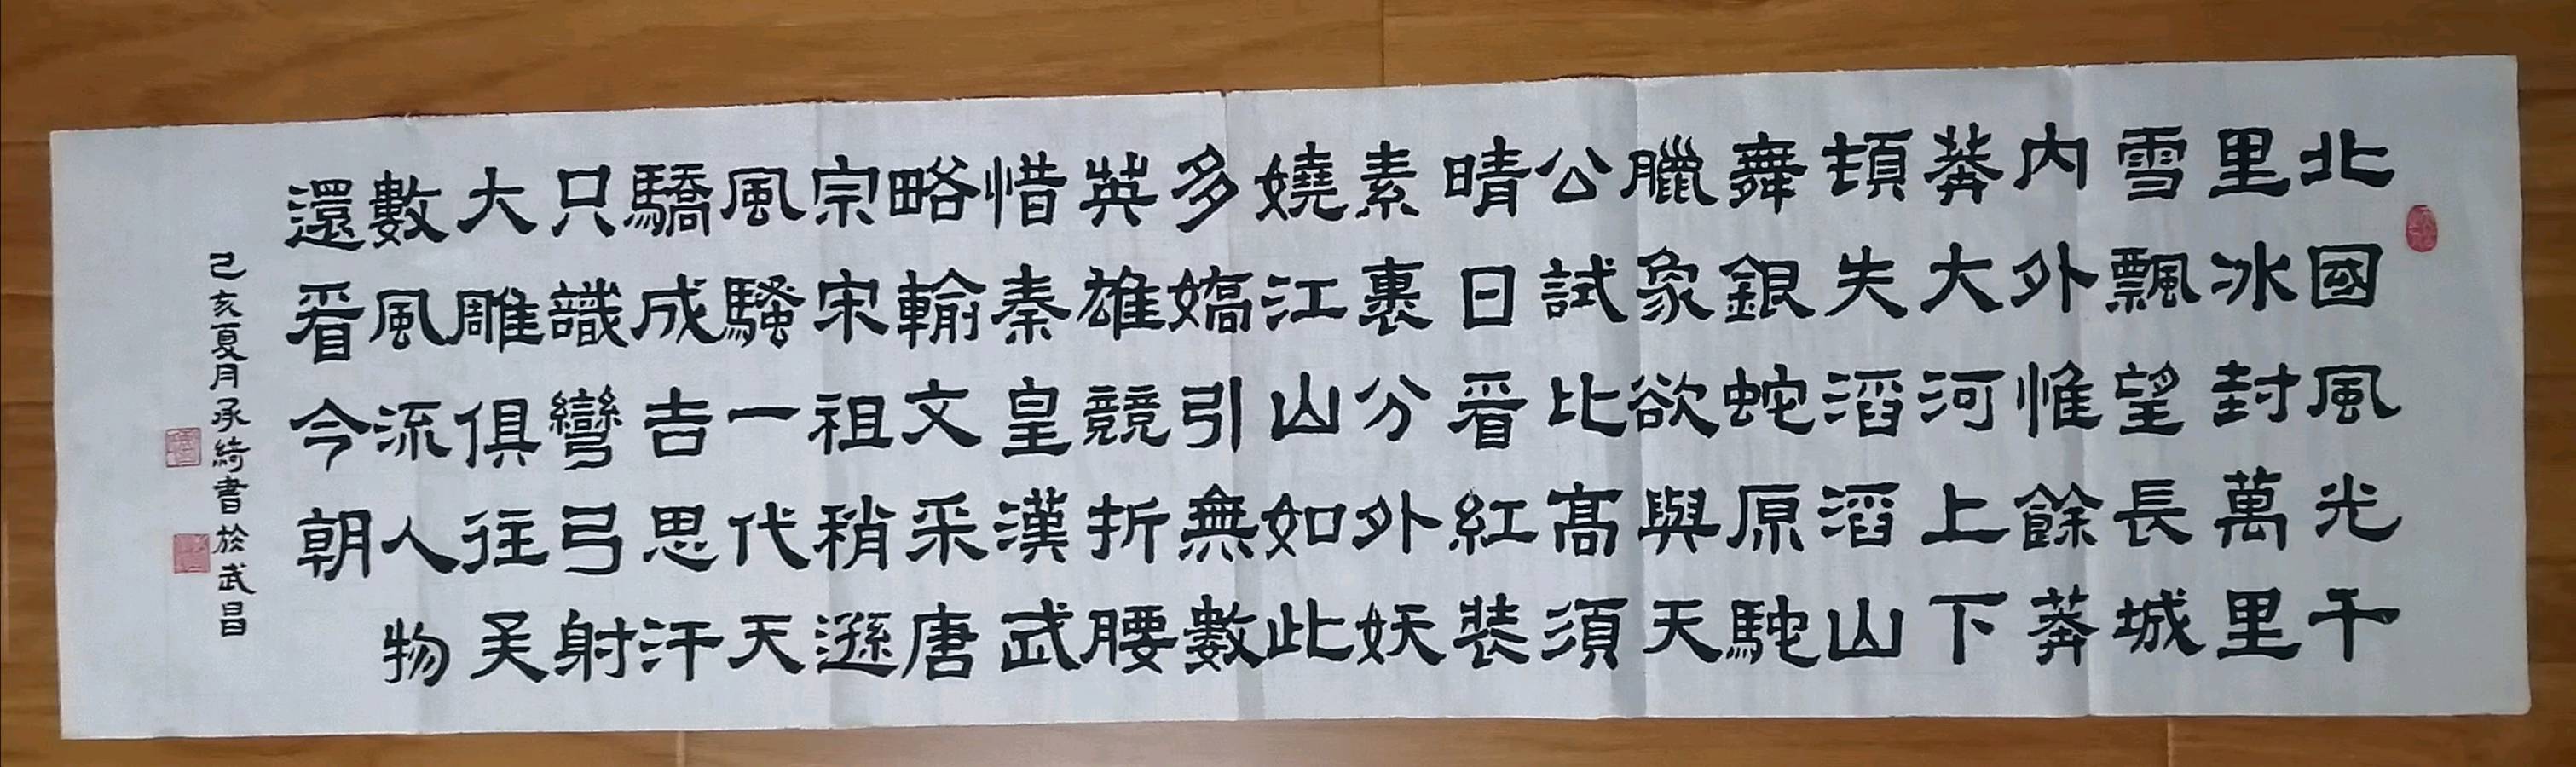 北國風光千
里冰封萬里
雪飄望長城
内外惟餘莽
莽大河上下
頓失滔滔山
舞銀蛇原駝
臘象欲與天
公試比髙須
晴日看紅裝
素裹分外妖
嬈江山如此
多嬌引無數
英雄競折腰
惜秦皇漢武
略輸文采唐
宗宋祖稍遜
風騷一代天
驕成吉思汗
只識彎弓射
大雕俱往矣
數風流人物
還看今朝
己亥夏月承綺書於武昌